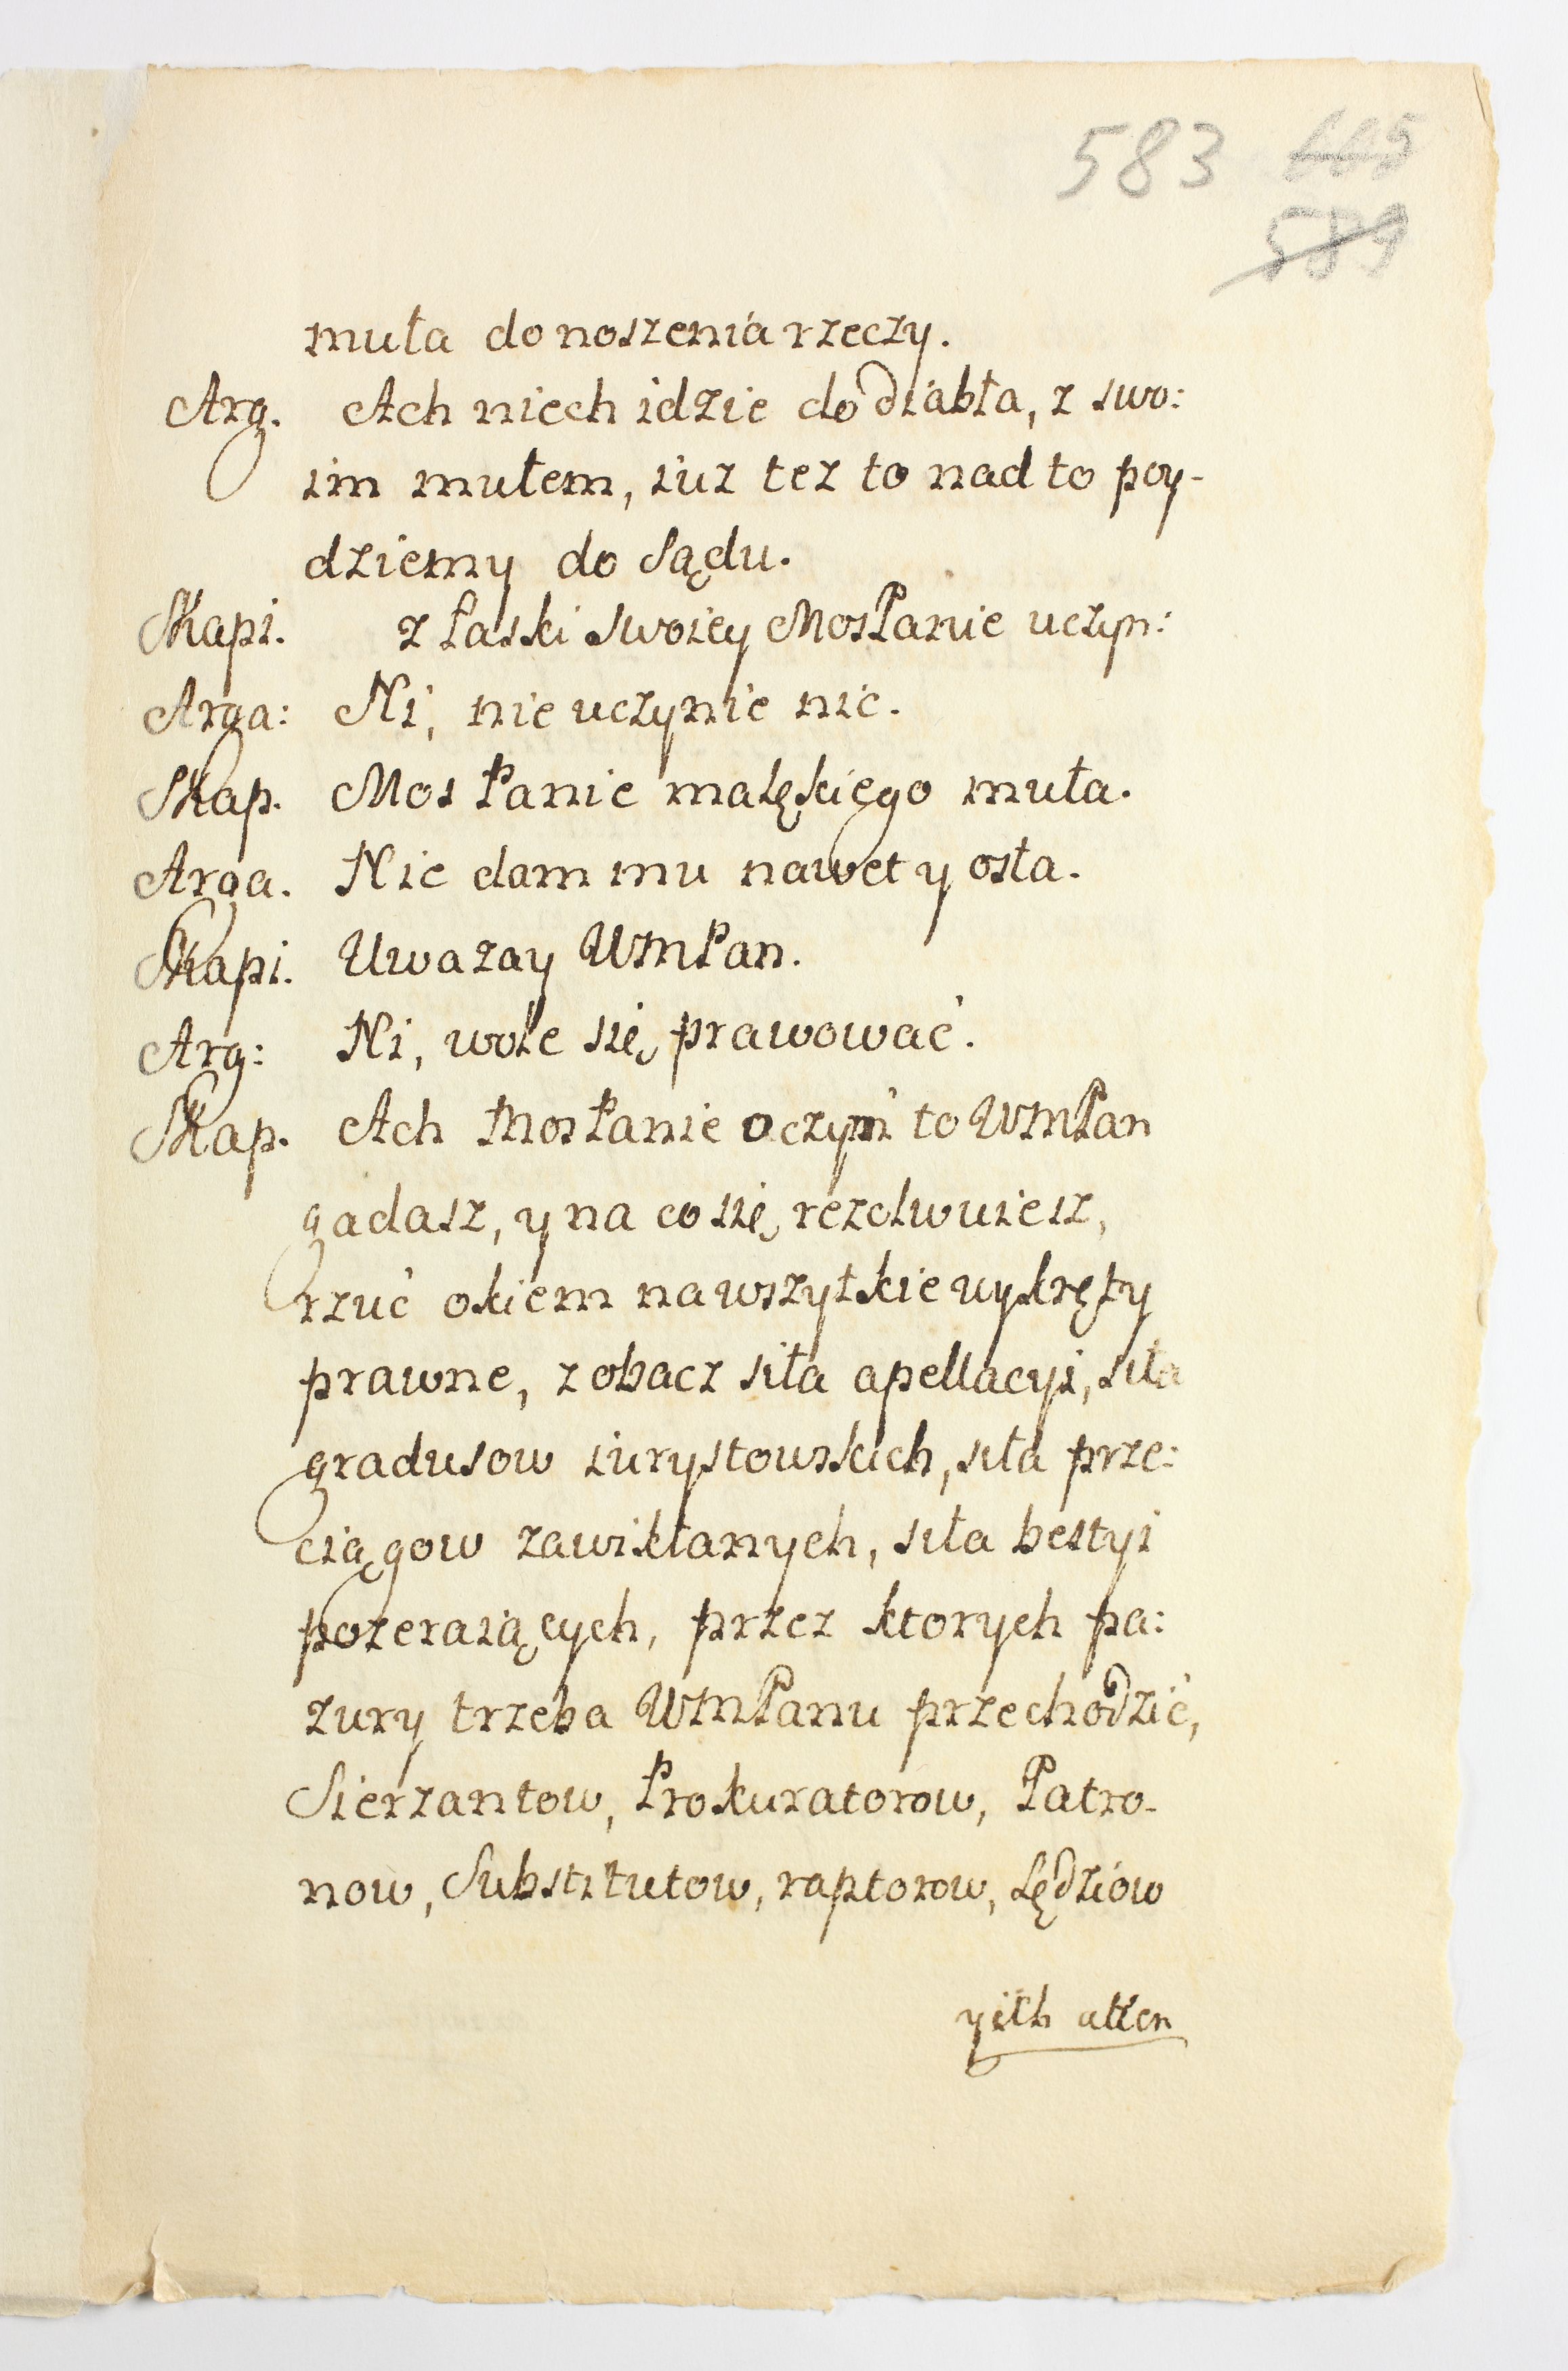 583 605
589
muła do noszenia rzeczy.
Arg. Ach niech idzie do diabła, z swo:
im mułem, iuz tez to nad to poy-
dziemy do Sądu.
Skapi. z łaski swoiey MosPanie uczyn:
Arga: Ni, nie uczynie nic.
Skap. Mos Panie malękięgo muła.
Arga. Nie dam mu nawet y osła.
Skapi. Uwazay WMPan.
Arg: Ni, wole się prawować.
Skap. Ach MosPanie o czym to WMPan
gadasz, y na co się rezolwuiesz,
rzuć okiem na wszytkie wykręty
prawne, zobacz siła apellacyi, siła
gradusow iurystowskich, siła prze:
ciągow zawikłanych, siła bestyi
pozeraiących, przez ktorych pa:
zury trzeba WMPanu przechodzić,
Sierzantow, Prokuratorow, Patro-
now, Substitutow, raptorow, Sędziow
yich